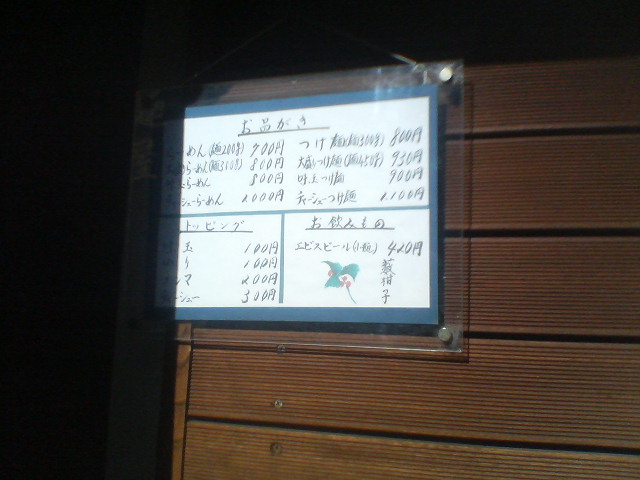 お品がき
らーめん(麺200g) 700円 つけ麺(麺300g) 800円
らーめん(麺350g) 800円 大盛つけ麺(麺450g) 950円
らーめん 800円 味玉つけ麺 900円
シューらーめん 1.000円 チャーシューつけ麺 1.100円
トッピング
玉 100円
り 100円
マ 200円
シュー 300円
お飲みもの
エビスビール(小瓶) 420円
藪柑子